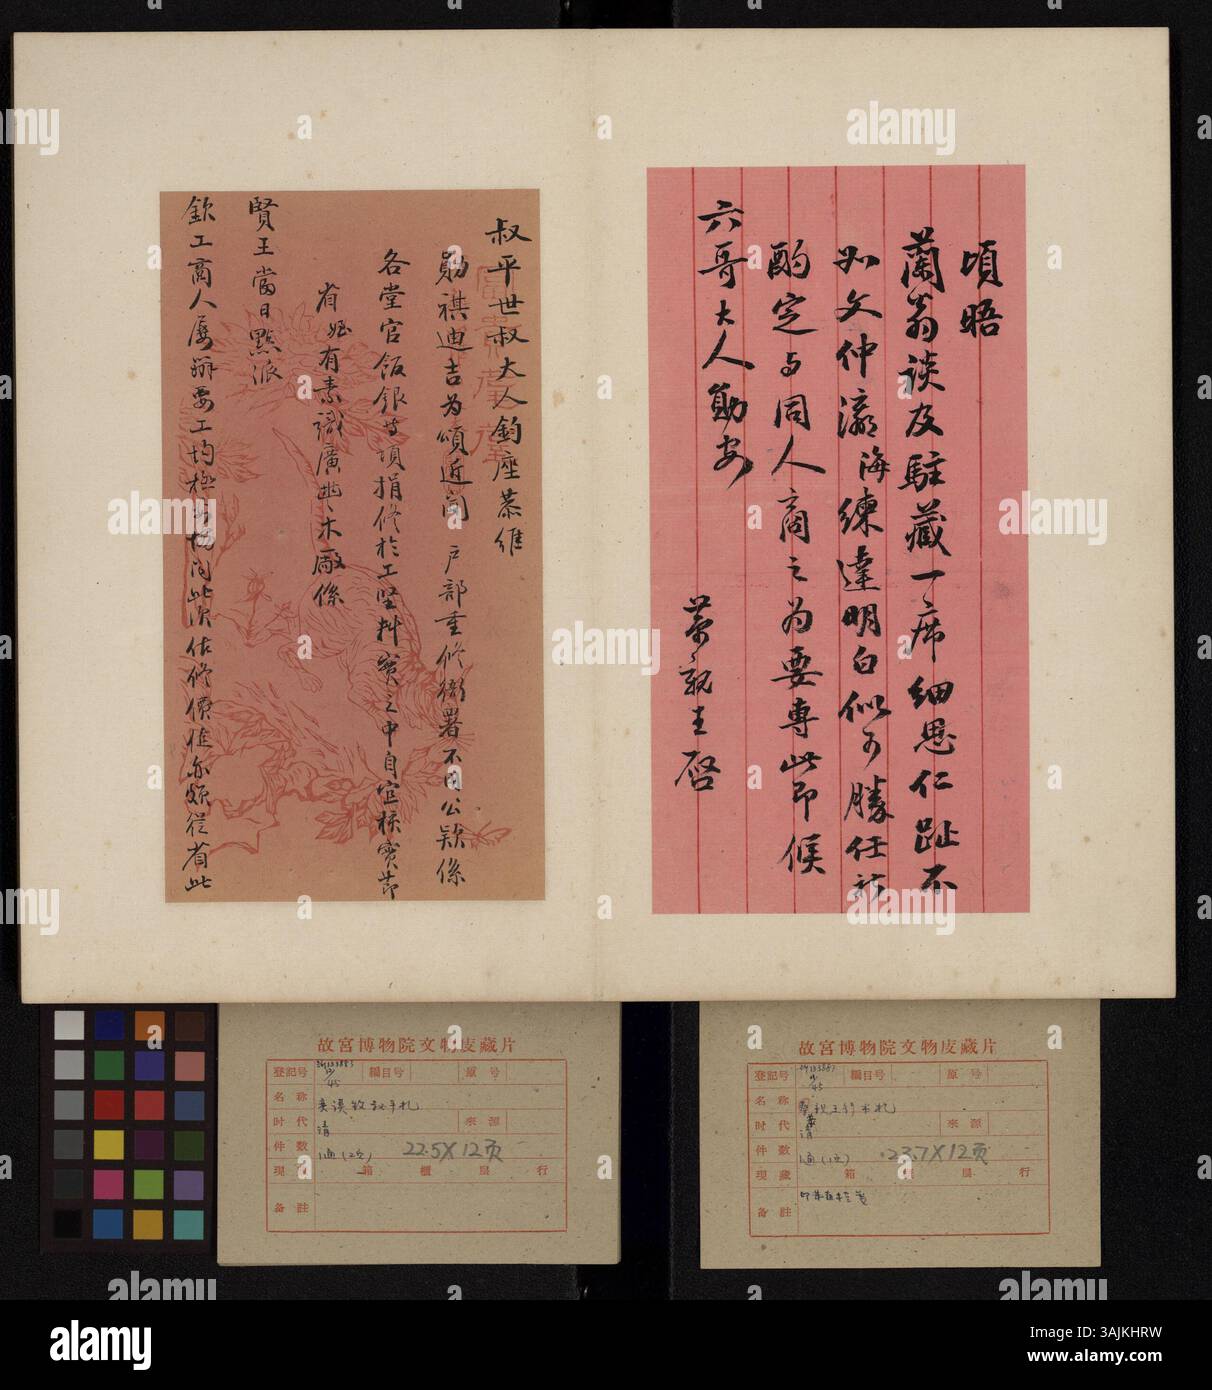 頃晤
蘭翁談及駐藏一席細思仁趾不
如文仲瀛海練達明白似可勝任祈
酌定與同人商之為要專此即候
六哥大人勛安
榮親王啓
叔平世叔大人鈞座恭維
勛祺迪吉為頌近聞 戶部重修衙署不用公款係
各堂官飯銀等項捐修於工堅料實之中自宜核實節
省姪有素識廣興木廠係
賢王當日點派
欽工商人屢辦要工均極
此次估修價值亦頗從省此
故宮博物院文物庋藏片
登記号 編目号 原号
名称
时代 清 來源
件数 1通(2页) 22.5×12页
現 箱 櫃 屜 行
备註
故宮博物院文物庋藏片
登記号 編目号 原号
名称 親王行书札
时代 清 來源
件数 1通(1页) 23.7×12页
現藏 箱 屜 行
备註
alamy
Image ID: 3AJKHRW
www.alamy.com